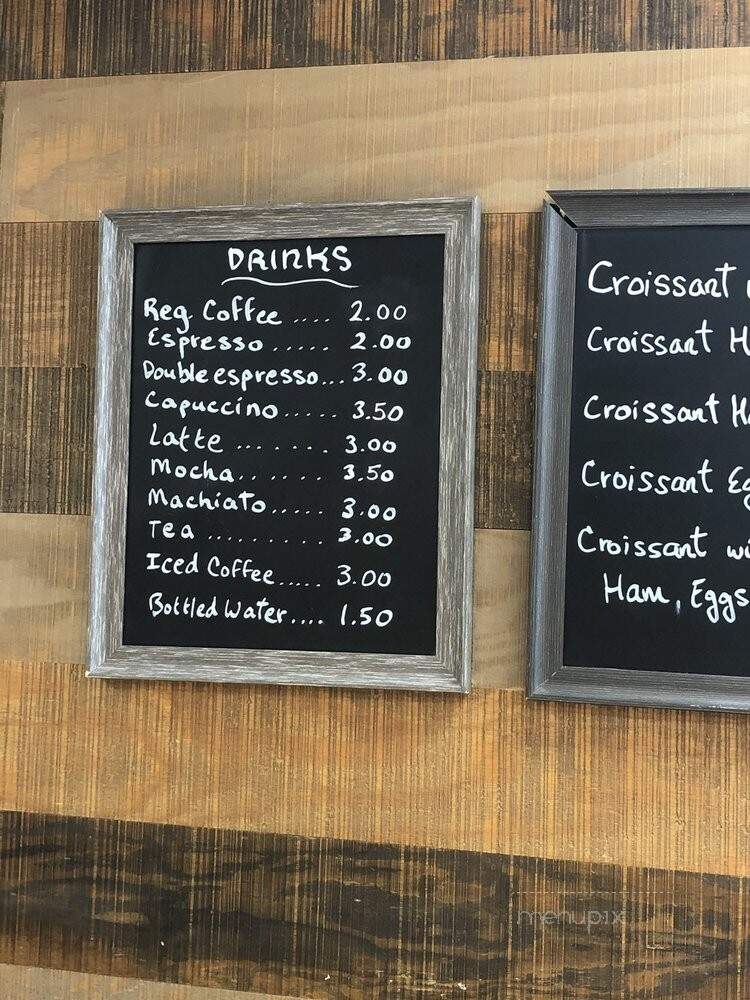 DRINKS
Reg Coffee .... 2.00
Espresso ..... 2.00
Double espresso... 3.00
Capuccino..... 3.50
Latte ....... 3.00
Mocha...... 3.50
Machiato..... 3.00
Tea .......... 3.00
Iced Coffee..... 3.00
Bottled Water.... 1.50
Croissant
Croissant H
Croissant Ha
Croissant Eg
Croissant wi
Ham, Eggs
menupix